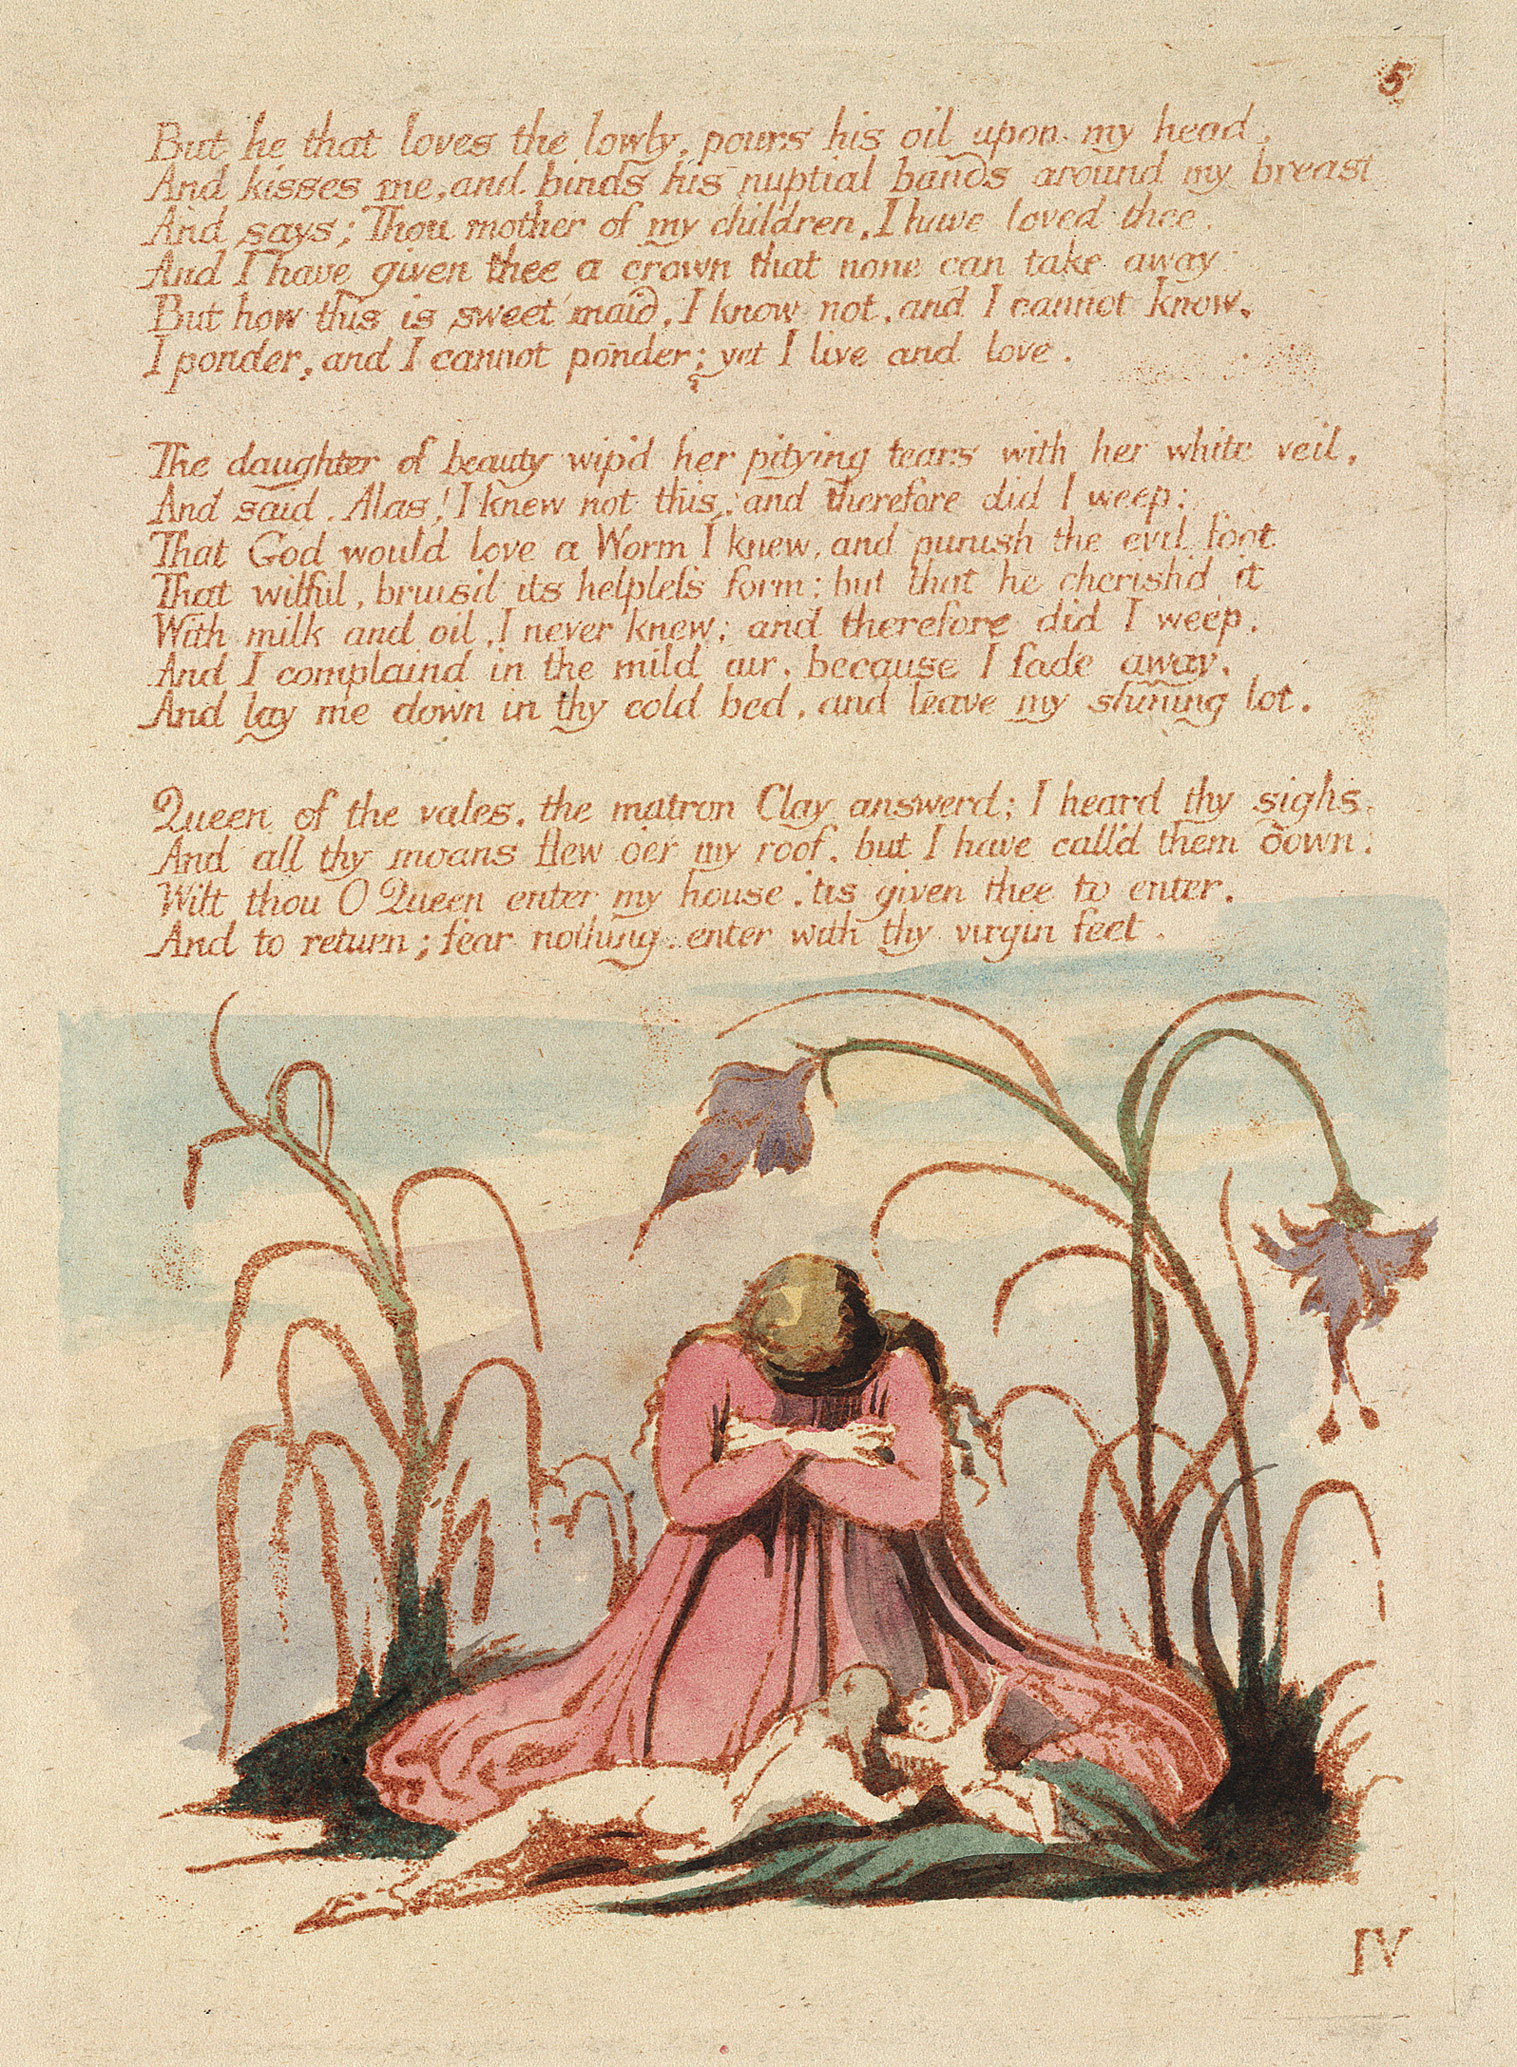 5
But he that loves the lowly, pours his oil upon my head,
And kisses me, and binds his nuptial bands around my breast
And says; Thou mother of my children, I have loved thee.
And I have given thee a crown that none can take away
But how this is sweet maid, I know not, and I cannot know.
I ponder, and I cannot ponder; yet I live and love.
The daughter of beauty wip'd her pitying tears with her white veil,
And said. Alas! I knew not this, and therefore did I weep:
That God would love a Worm I knew, and punish the evil foot
That wilful, bruis'd its helpless form: but that he cherish'd it
With milk and oil, I never knew; and therefore did I weep,
And I complaind in the mild air, because I fade away,
And lay me down in thy cold bed, and leave my shining lot.
Queen of the vales, the matron Clay answerd; I heard thy sighs.
And all thy moans flew o'er my roof, but I have call'd them down:
Wilt thou O Queen enter my house, 'tis given thee to enter,
And to return; fear nothing, enter with thy virgin feet.
IV